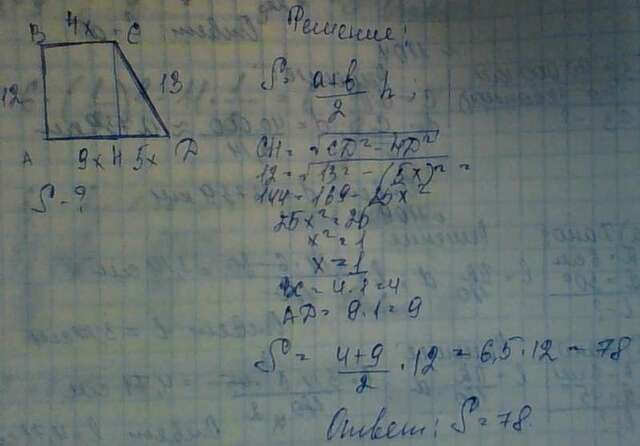 B 4x C
12
13
A 9x H 5x D
S - ?
Решение:
S = a+b/2 h;
CH = √CD² - HD²
12 = √13² - (5x)² =
144 = 169 - 25x²
25x² = 25
x² = 1
x = 1
BC = 4·1=4
AD = 9·1=9
S = 4+9/2 · 12 = 6,5·12 = 78
Ответ: S = 78.